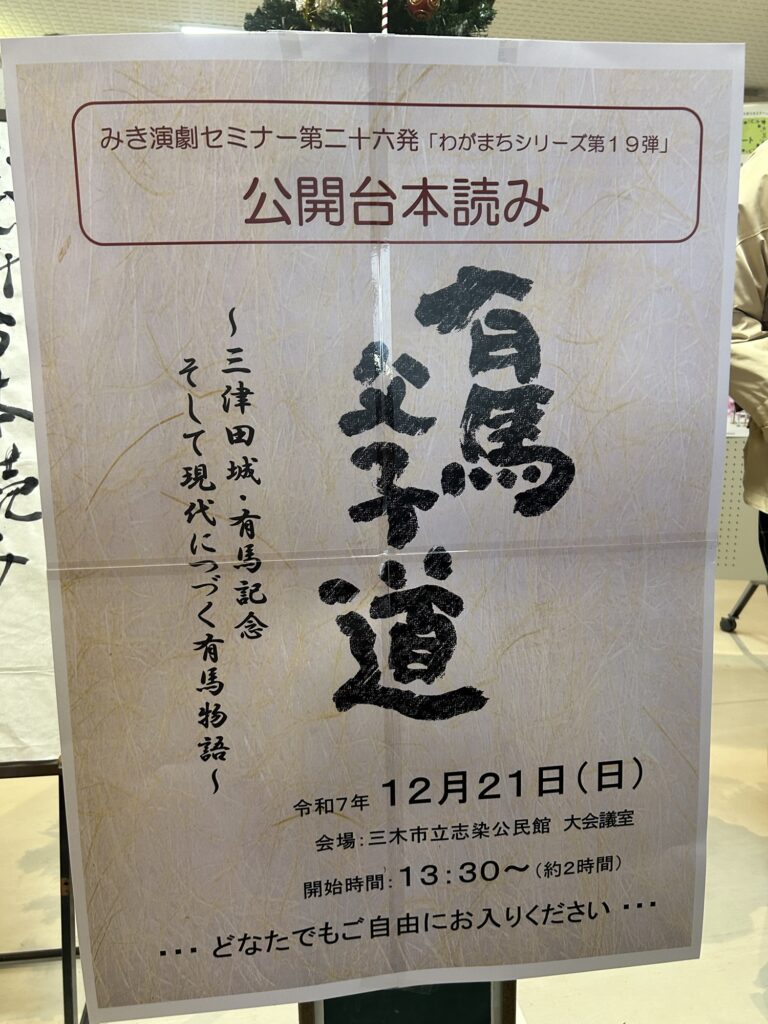 みき演劇セミナー第二十六発「わがまちシリーズ第19弾」
公開台本読み
有馬
父子道
～三津田城・有馬記念
そして現代につづく有馬物語～
令和7年 12月21日(日)
会場:三木市立志染公民館 大会議室
開始時間:13:30～(約2時間)
･･･ どなたでもご自由にお入りください ･･･